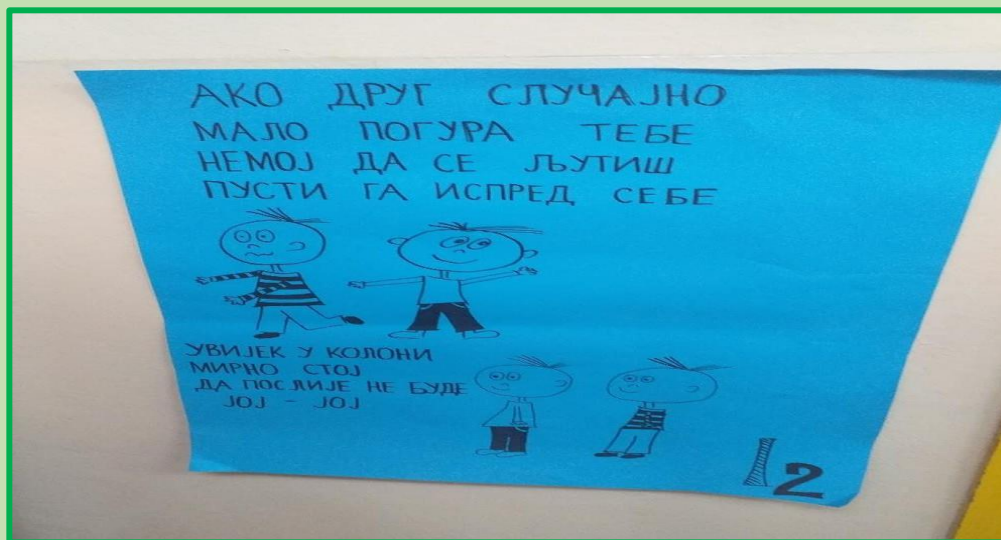 АКО ДРУГ СЛУЧАЈНО
МАЛО ПОГУРА ТЕБЕ
НЕМОЈ ДА СЕ ЉУТИШ
ПУСТИ ГА ИСПРЕД СЕБЕ
УВИЈЕК У КОЛОНИ
МИРНО СТОЈ
ДА ПОСЛИЈЕ НЕ БУДЕ
ЈОЈ - ЈОЈ
12